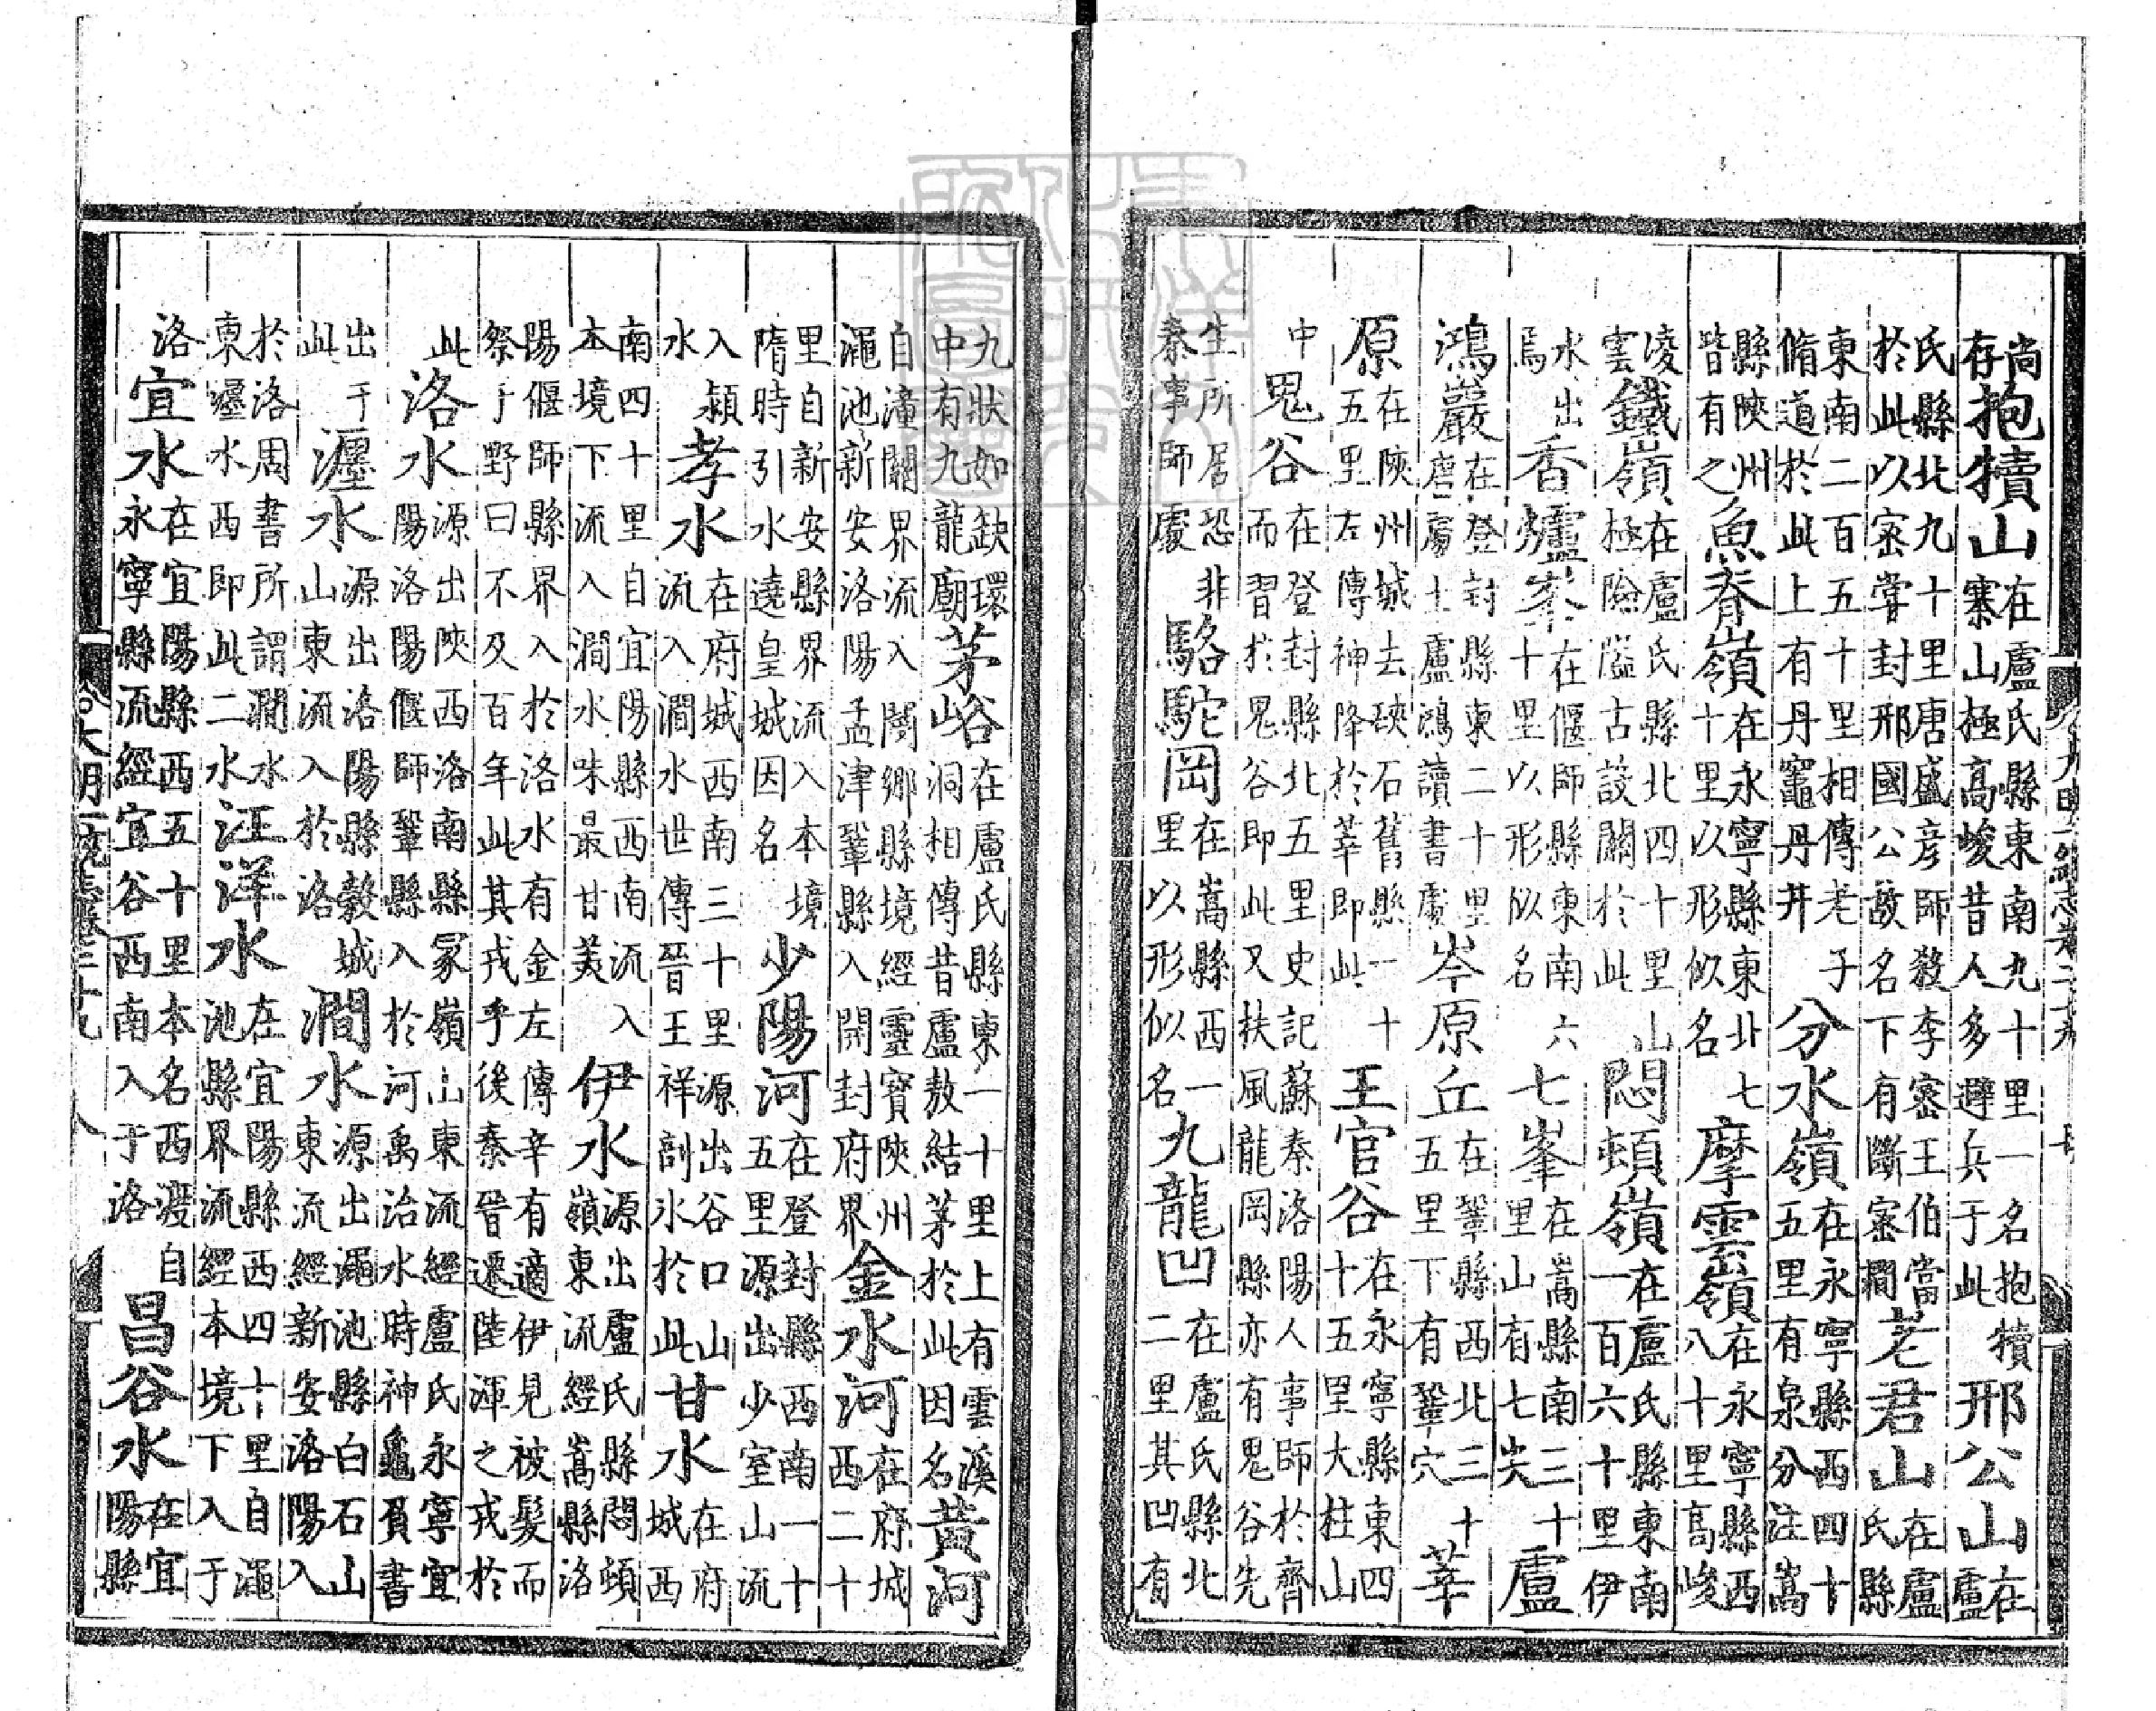 尚存抱犢山在盧氏縣東南九十里一名抱犢寨山極高峻昔人多避兵于此邢公山在盧
氏縣北九十里唐盛彥師殺李密王伯當於此以密嘗封邢國公故名下有斷密澗老君山在盧氏縣
東南二百五十里相傳老子脩道於此上有丹竈丹井分水嶺在永寧縣西四十五里有泉分注嵩
縣陝州皆有之魚脊嶺在永寧縣東北七十里以形似名摩雲嶺在永寧縣西八十里高峻
凌雲鐵嶺在盧氏縣北四十里山極險隘古設關於此悶頓嶺在盧氏縣東南一百六十里伊
水出焉香爐峯在偃師縣東南六十里以形似名七峯在嵩縣南三十里山有七尖盧
鴻巖在登封縣東二十里唐處士盧鴻讀書處岑原丘在鞏縣西北三十五里下有鞏穴莘
原在陝州城去硤石舊縣一十五里左傳神降於莘即此王官谷在永寧縣東四十五里大柱山
中鬼谷在登封縣北五里史記蘇秦洛陽人事師於齊而習於鬼谷即此又扶風龍岡縣亦有鬼谷先
生所居恐非秦事師處駱駝岡在嵩縣西一里以形似名九龍凹在盧氏縣北二里其凹有
九狀如缺環中有九龍廟茅峪在盧氏縣東一十里上有雲溪洞相傳昔盧敖結茅於此因名黃河
自潼關界流入閿鄉縣境經靈寶陝州澠池新安洛陽孟津鞏縣入開封府界金水河在府城西二十
里自新安縣界流入本境隋時引水遶皇城因名少陽河在登封縣西南一十五里源出少室山流
入潁水孝水在府城西南三十里源出谷口山流入澗水世傳晉王祥剖冰於此甘水在府城西
南四十里自宜陽縣西南流入本境下流入澗水味最甘美伊水源出盧氏縣悶頓嶺東流經嵩縣洛
陽偃師縣界入於洛水有金左傳辛有適伊見被髮而祭于野曰不及百年此其戎乎後秦晉遷陸渾之戎於
此洛水源出陝西洛南縣冢嶺山東流經盧氏永寧宜陽洛陽偃師鞏縣入於河禹治水時神龜負書
出于此瀍水源出洛陽縣穀城山東流入於洛澗水源出澠池縣白石山東流經新安洛陽入
於洛周書所謂澗水東瀍水西即此二水汪洋水在宜陽縣西四十里自澠池縣界流經本境下入于
洛宜水在宜陽縣西五十里本名西渡自永寧縣流經宜谷西南入于洛昌谷水在宜陽縣
大明一統志卷二十九 八